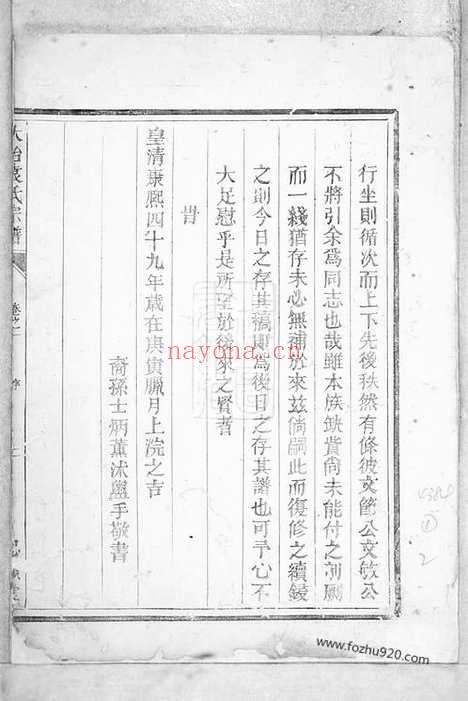 行坐則循次而上下先後秩然有條彼文節公文敏公
不將引余為同志也哉雖本族缺貲尚未能付之剞劂
而一綫猶存未必無補於來茲倘嗣此而復修之續鋟
之則今日之存其稿即為後日之存其譜也可予心不
大足慰乎是所望於後來之賢者
旹
皇清康熙四十九年歲在庚寅臘月上浣之吉
裔孫士炳薰沐盥手敬書
大冶袁氏宗譜
卷之一
序
nayona.cn
www.fozhu920.com
2